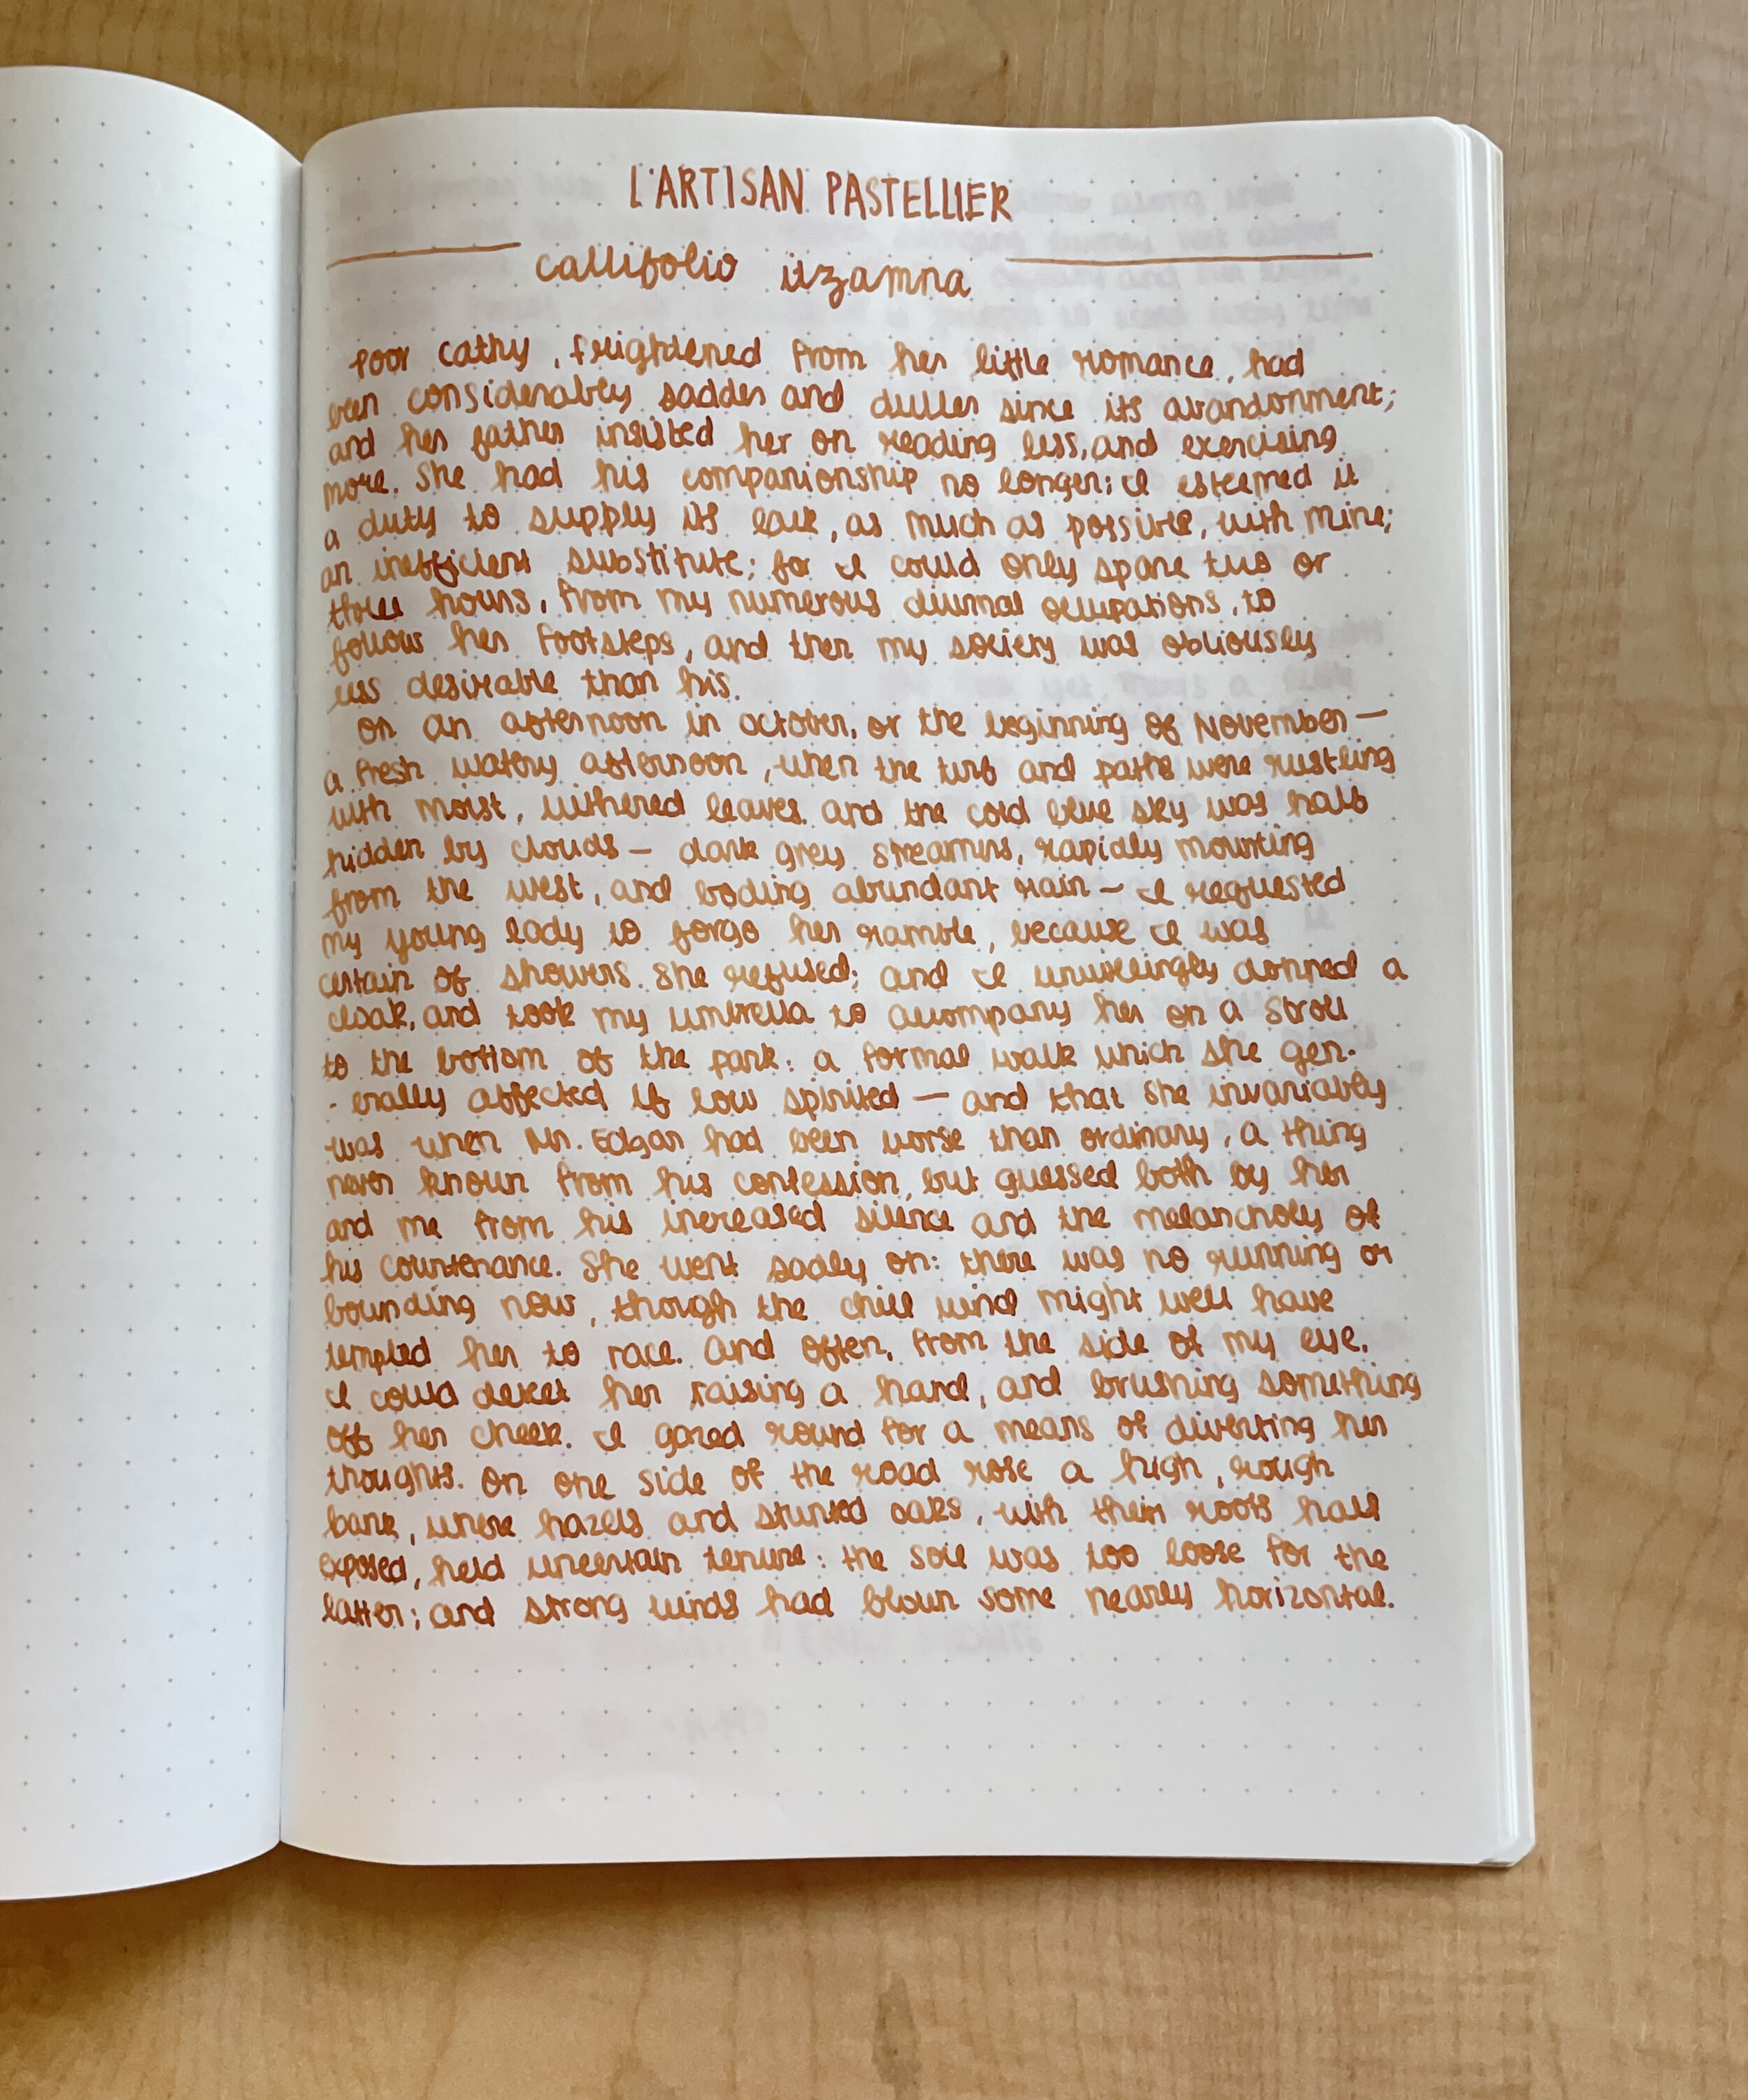 L'ARTISAN PASTELLIER
callifolio itzamna
Poor Cathy, frightened from her little romance, had
been considerably sadder and duller since its abandonment;
and her father insisted her on reading less, and exercising
more. She had his companionship no longer; I esteemed it
a duty to supply its lack, as much as possible, with mine;
an inefficient substitute; for I could only spare two or
three hours, from my numerous diurnal occupations, to
follow her footsteps, and then my society was obviously
less desirable than his.
On an afternoon in October, or the beginning of November —
a fresh watery afternoon, when the turf and paths were rustling
with moist, withered leaves, and the cold blue sky was half
hidden by clouds — dark grey streamers, rapidly mounting
from the west, and boding abundant rain — I requested
my young lady to forgo her ramble, because I was
certain of showers. She refused; and I unwillingly donned a
cloak, and took my umbrella to accompany her on a stroll
to the bottom of the park: a formal walk which she gen-
-erally affected if low spirited — and that she invariably
was when Mr. Edgar had been worse than ordinary, a thing
never known from his confession, but guessed both by her
and me from his increased silence and the melancholy of
his countenance. She went sadly on: there was no running or
bounding now, though the chill wind might well have
tempted her to race. And often, from the side of my eye,
I could detect her raising a hand, and brushing something
off her cheek. I gazed round for a means of diverting her
thoughts. On one side of the road rose a high, rough
bank, where hazels and stunted oaks, with their roots half
exposed, held uncertain tenure: the soil was too loose for the
latter; and strong winds had blown some nearly horizontal.